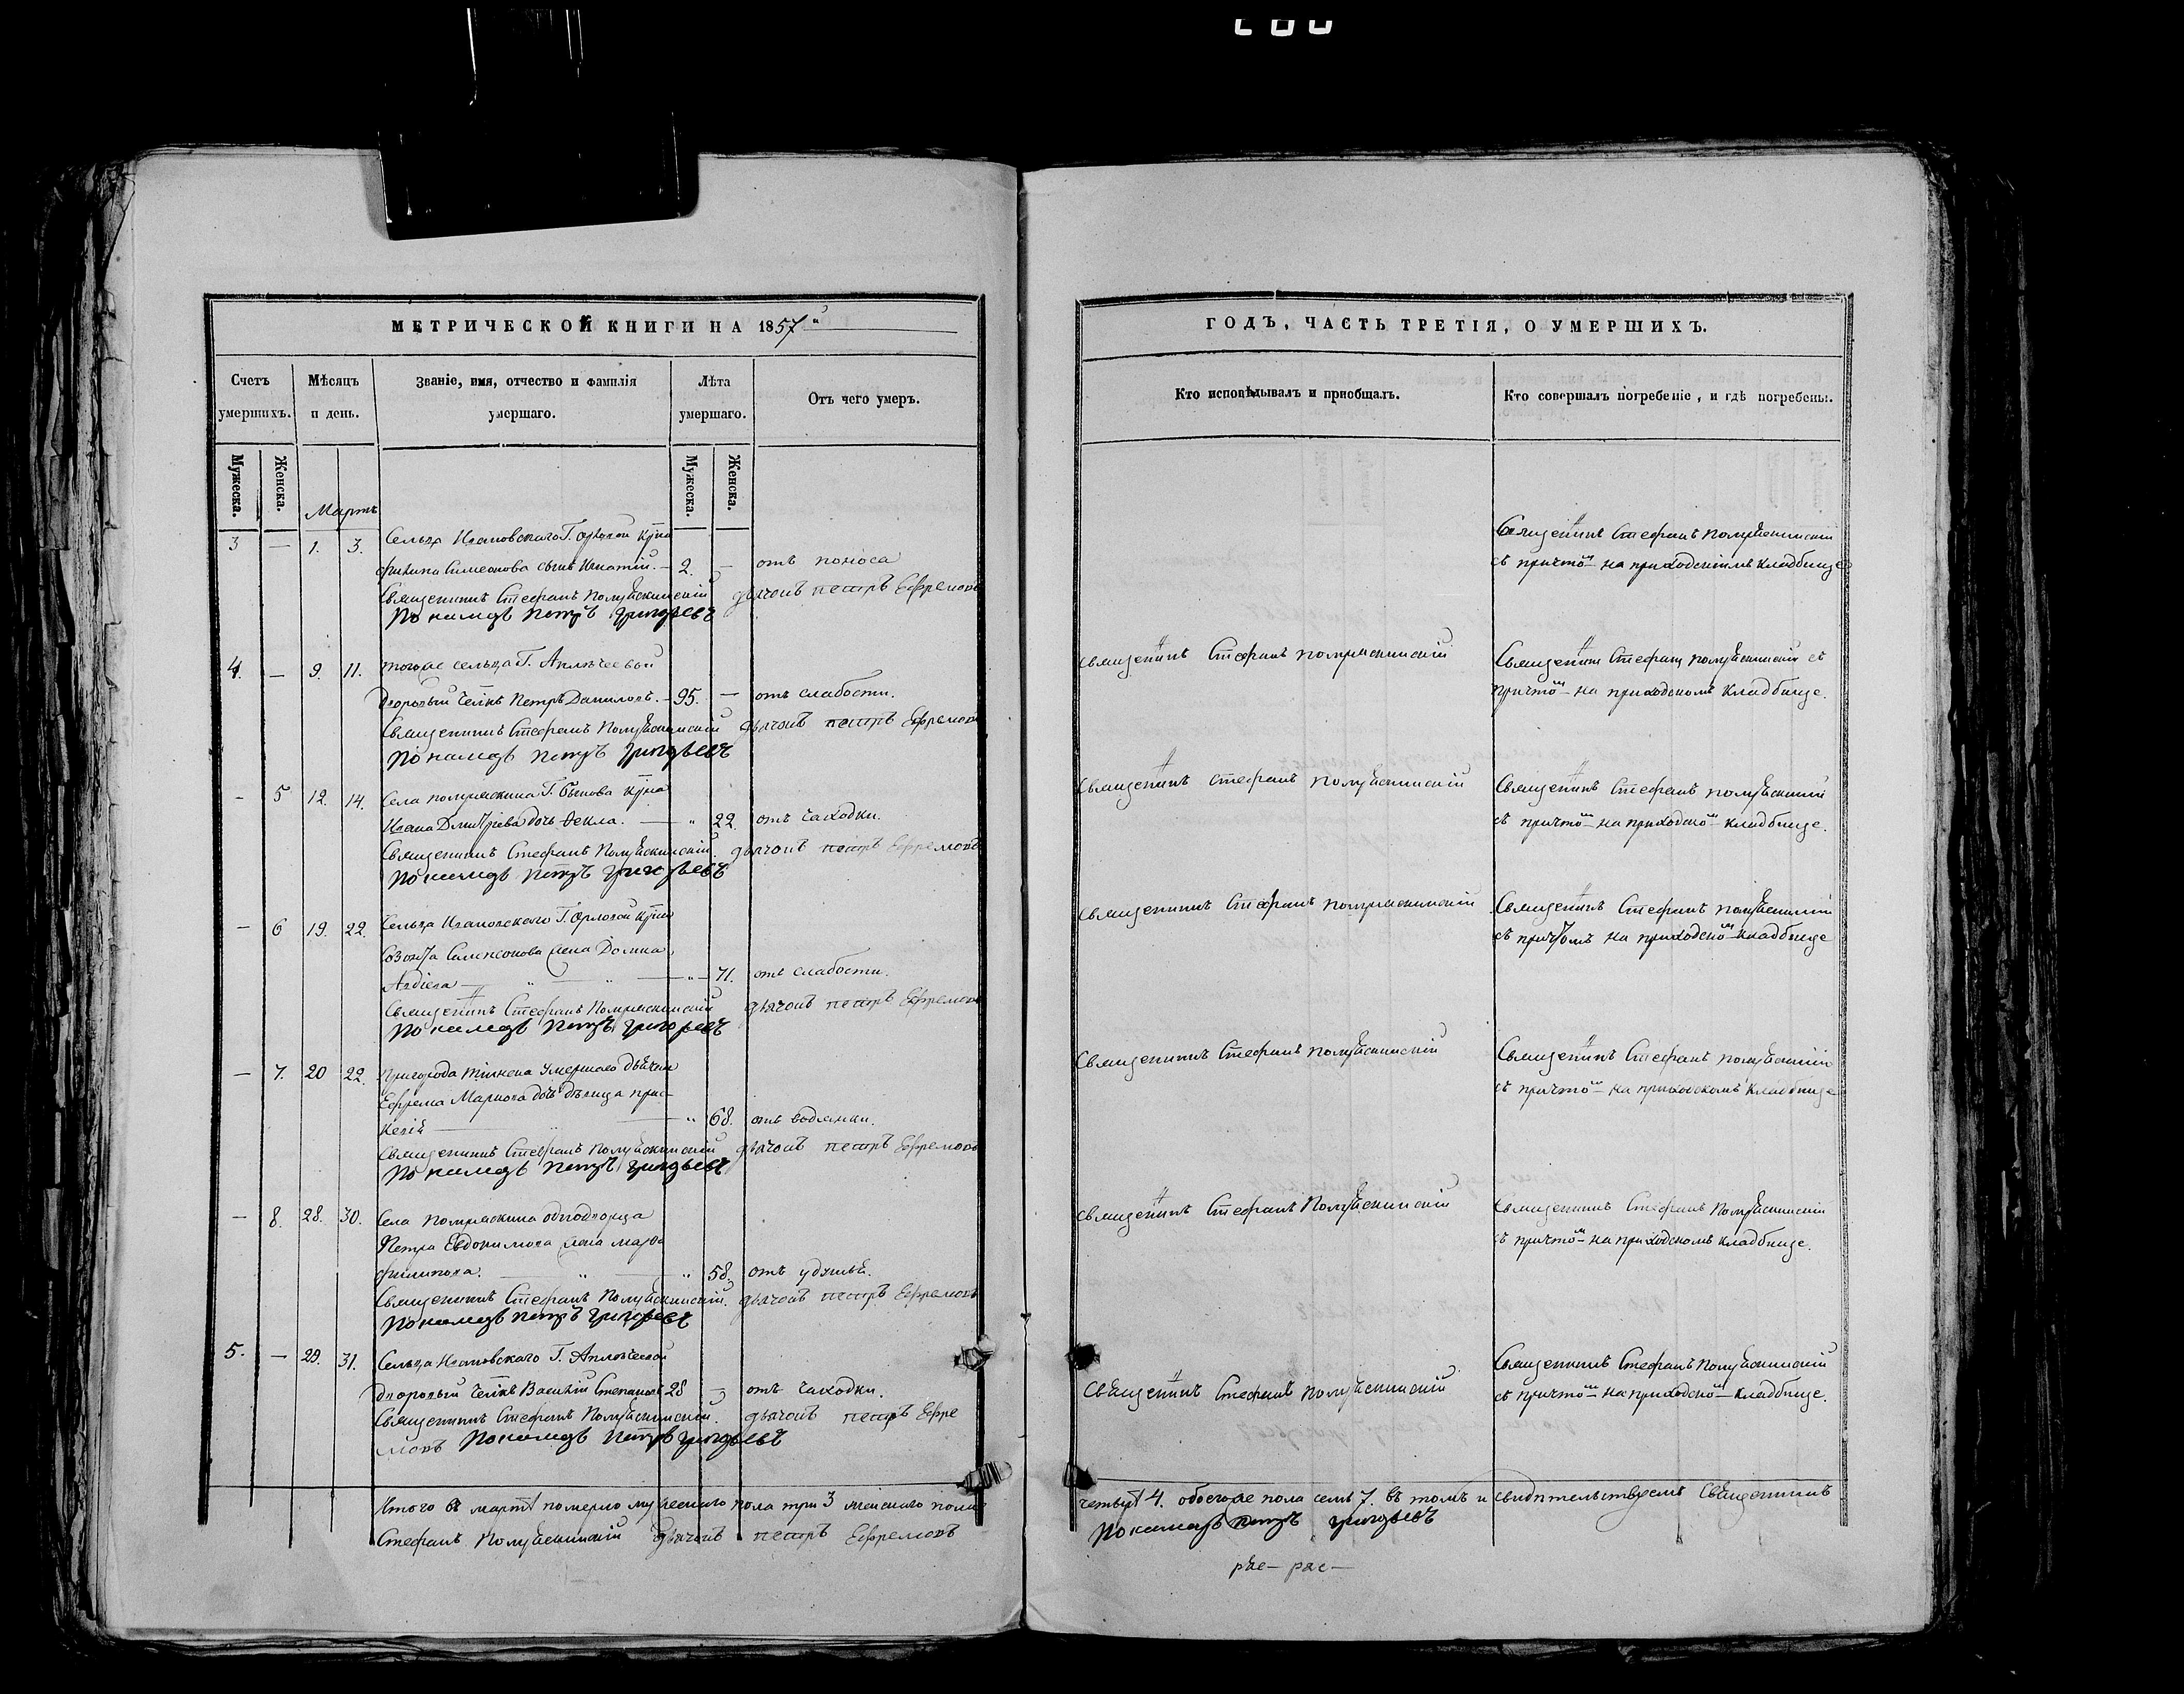 МЕТРИЧЕСКОЙ КНИГИ НА 1857й
Счетъ умершихъ.
Мѣсяцъ и день.
Званіе, имя, отчество и фамилія умершаго.
Лѣта умершаго.
Отъ чего умеръ.
Мужеска.
Женска.
Мужеска.
Женска.
Мартъ
3 — 1. 3. Сельца Ивановскаго Г. Орловой
Симеонова сынъ Игнатій. — 2. — отъ поноса
Священникъ Стефанъ Помряскинскій дьячокъ петръ Ефремовъ
Пономарь Петръ Григорьевъ
4. — 9. 11. тогоже сельца Г.
Дворовый Петръ Даниловъ. — 95. — отъ слабости.
Священникъ Стефанъ Помряскинскій дьячокъ петръ Ефремовъ
Пономарь Петръ Григорьевъ
- 5 12. 14. Села помряскина Г.
Ивана Дмитріева дочь Фекла. — " 22. отъ чаходки.
Священникъ Стефанъ Помряскинскій. дьячокъ петръ Ефремовъ
Пономарь Петръ Григорьевъ
— 6 19. 22. Сельца Ивановскаго Г. Орловой
Созонта жена Домна
— " — " — " — 71. отъ слабости.
Священникъ Стефанъ Помряскинскій дьячокъ петръ Ефремовъ
Пономарь Петръ Григорьевъ
— 7. 20 22. Пригорода умершаго
Ефрема Маркова дочь дѣвица
— " — " 68. отъ водянки.
Священникъ Стефанъ Помряскинскій дьячокъ петръ Ефремовъ
Пономарь Петръ Григорьевъ
— 8. 28. 30. Села Помряскина однодворца
Петра Евдокимова жена
филипова. — " — " 58. отъ удушья.
Священникъ Стефанъ Помряскинскій. дьячокъ петръ Ефремовъ
Пономарь Петръ Григорьевъ
5. — 29. 31. Сельца Ивановскаго Г.
дворовый Василій Степановъ 28 — отъ чаходки.
Священникъ Стефанъ Помряскинскій. дьячокъ петръ Ефре
мовъ Пономарь Петръ Григорьевъ
Итого въ мартѣ померло мужескаго пола три 3 женскаго пола
Стефанъ Помряскинскій дьячокъ петръ Ефремовъ
ГОДЪ, ЧАСТЬ ТРЕТІЯ, О УМЕРШИХЪ.
Кто исповѣдывалъ и пріобщалъ.
Кто совершалъ погребеніе, и гдѣ погребены.
Священникъ Стефанъ Помряскинскій
съ причтомъ на приходскомъ кладбище
Священникъ Стефанъ помряскинскій
Священникъ Стефанъ помряскинскій съ
причтомъ на приходскомъ кладбище.
Священникъ Стефанъ помряскинскій
Священникъ Стефанъ помряскинскій
съ причтомъ на приходскомъ кладбище.
Священникъ Стефанъ помряскинскій
Священникъ Стефанъ помряскинскій
съ причтомъ на приходскомъ кладбище
Священникъ Стефанъ помряскинскій
Священникъ Стефанъ помряскинскій
съ причтомъ на приходскомъ кладбище
Священникъ Стефанъ Помряскинскій
Священникъ Стефанъ Помряскинскій
съ причтомъ на приходскомъ кладбище.
Священникъ Стефанъ помряскинскій
Священникъ Стефанъ Помряскинскій
съ причтомъ на приходскомъ кладбище.
четыре 4. обоегоже пола семь 7. въ томъ и свидѣтельствуемъ Священникъ
Пономарь Петръ Григорьевъ
ряс — ряс —